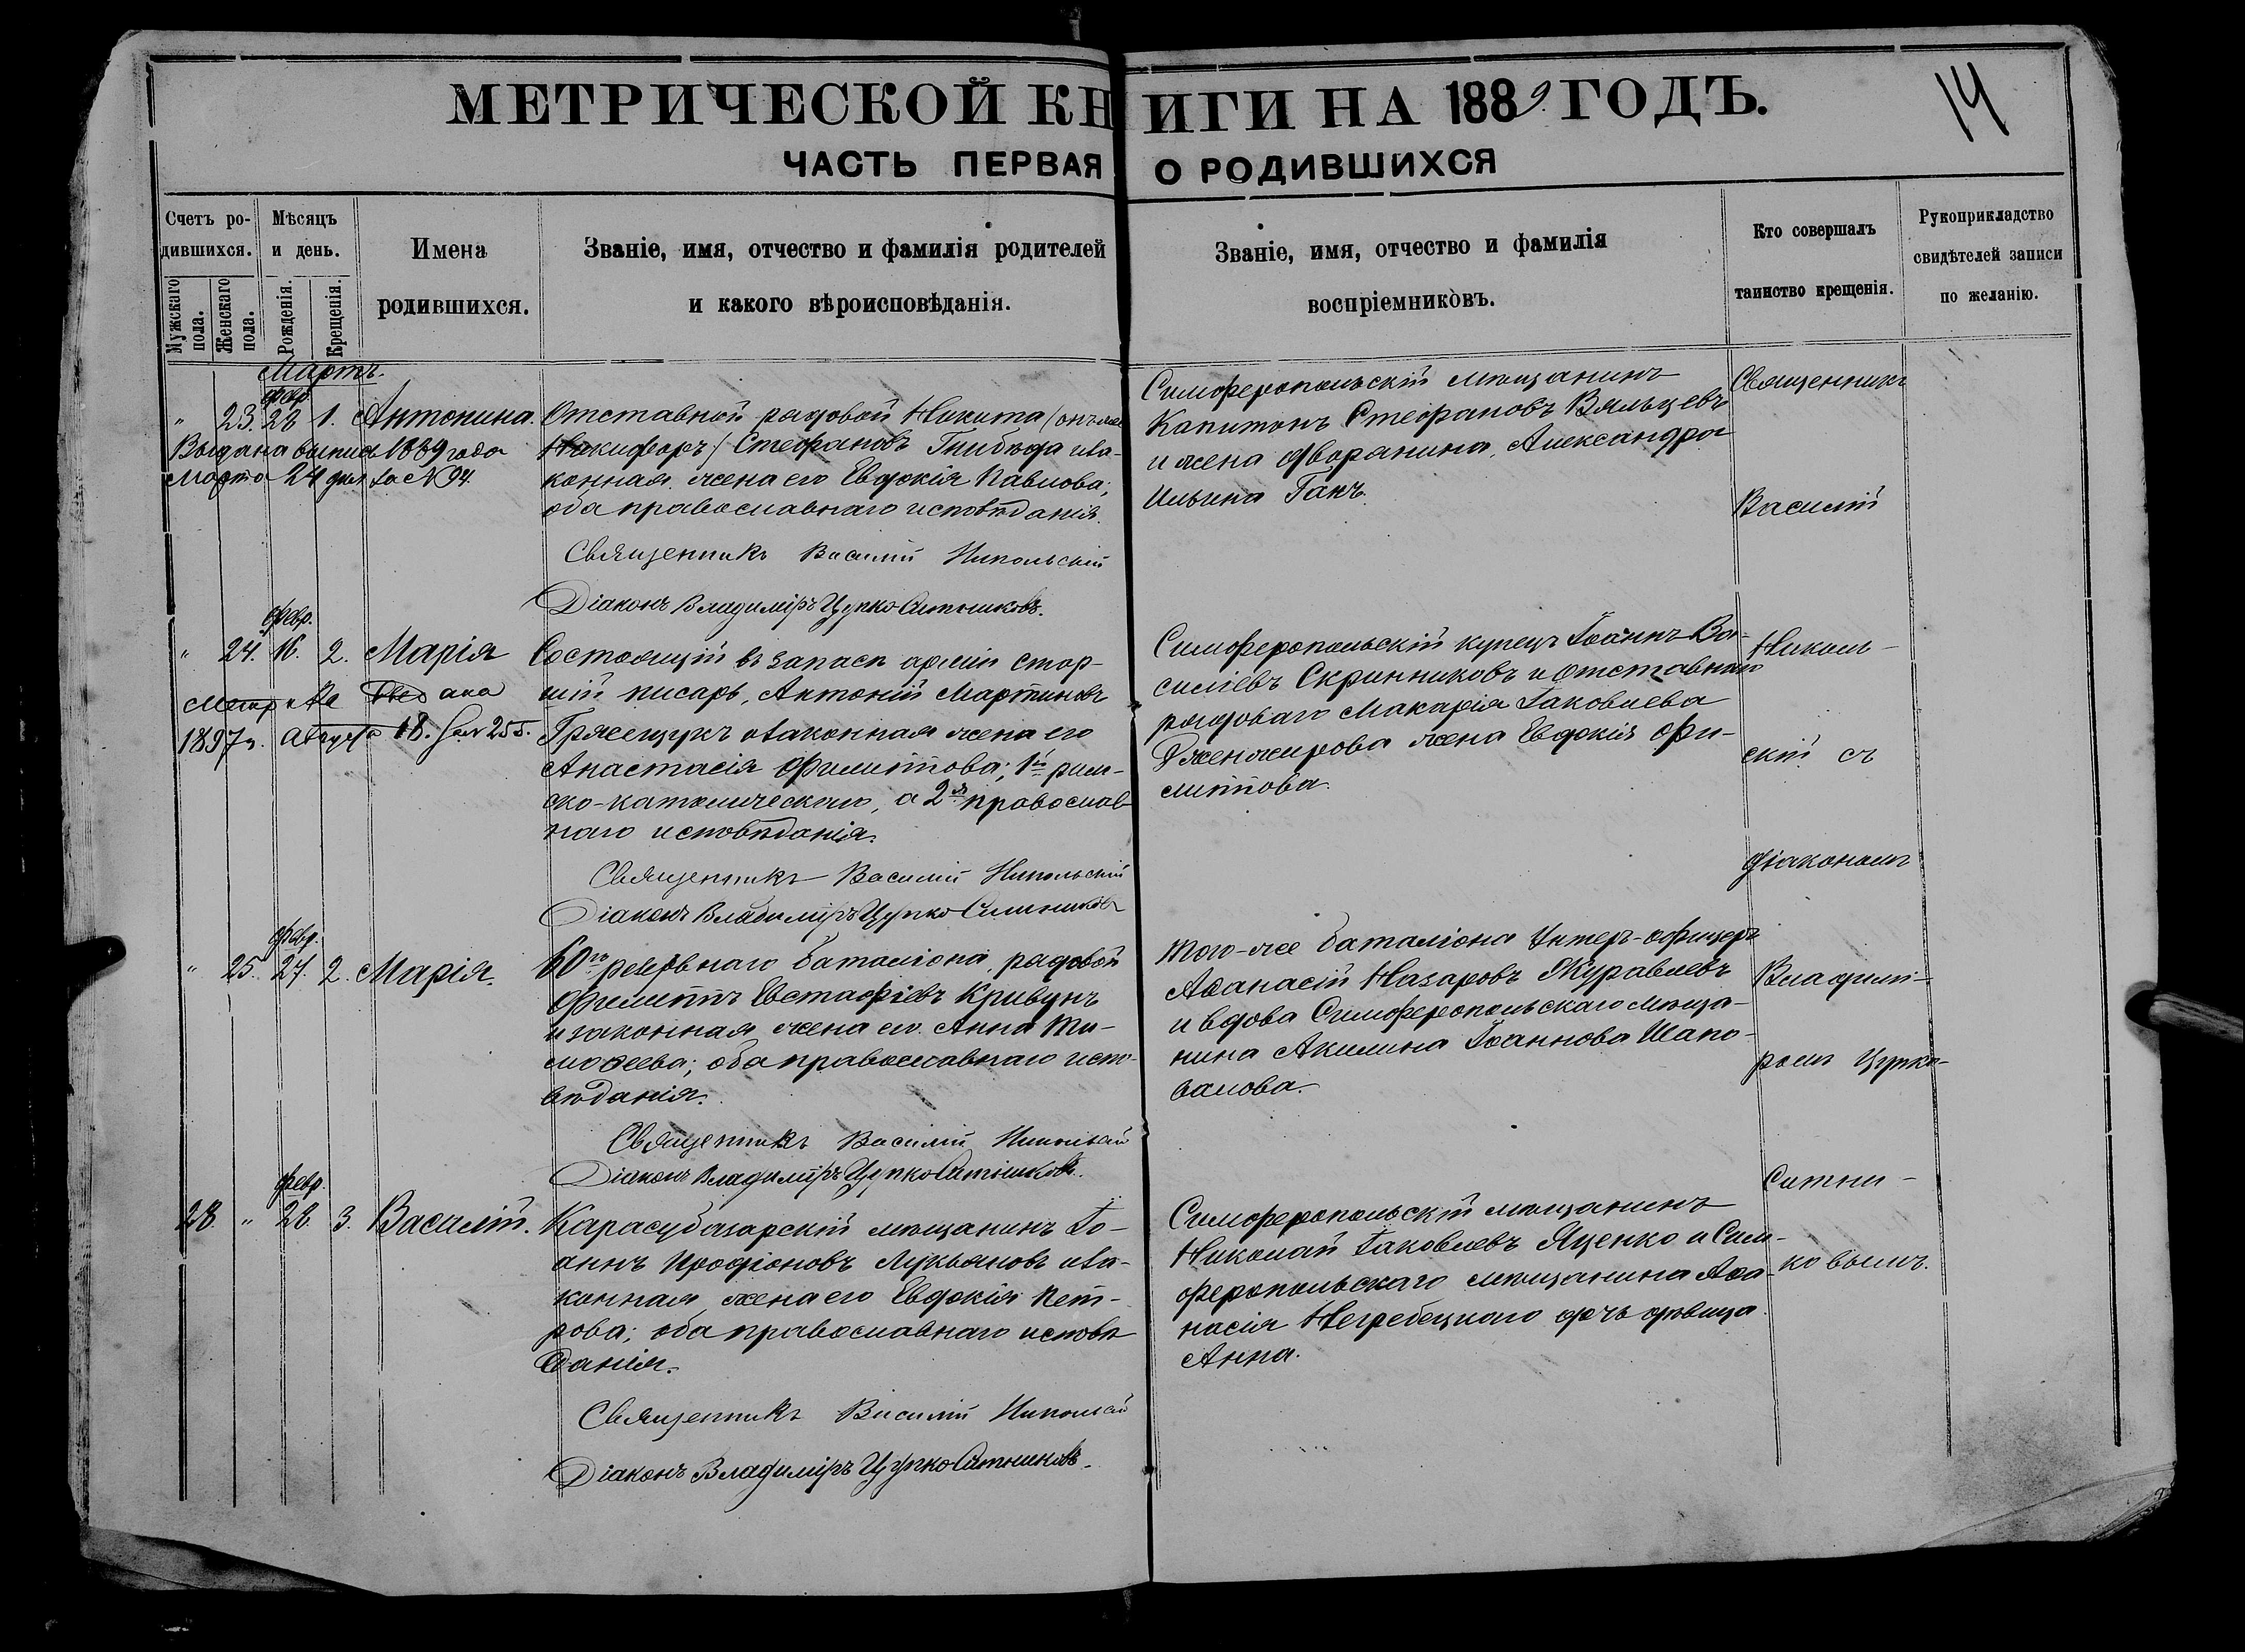 МЕТРИЧЕСКОЙ КНИГИ НА 1889 ГОДЪ.
14
ЧАСТЬ ПЕРВАЯ О РОДИВШИХСЯ
Счетъ ро-
дившихся.
Мужскаго пола.
Женскаго пола.
Мѣсяцъ
и день.
Рожденія.
Крещенія.
Имена
родившихся.
Званіе, имя, отчество и фамилія родителей
и какого вѣроисповѣданія.
Званіе, имя, отчество и фамилія
воспріемниковъ.
Кто совершалъ
таинство крещенія.
Рукоприкладство
свидѣтелей записи
по желанію.
Мартъ.
февр.
" 23. 28 1. Антонина.
Выдана выпись 1889 года
Марта 24 дня за № 94.
Отставной рядовой Никита (онъ же
Никифоръ) Стефановъ и за-
конная жена его Евдокія Павлова;
оба православнаго исповѣданія.
Священникъ Василій Никольскій
Діаконъ Владиміръ Цупко Ситниковъ.
Симферопольскій мѣщанинъ
Капитонъ Стефановъ Вяльцевъ
и жена дворянина, Александра
Ильина Ганъ.
февр.
" 24. 16. 2. Марія
1897 г. Августа 18. за № 255.
Состоящій въ запасѣ арміи стар-
шій писарь, Антоній Мартиновъ
и законная жена его
Анастасія Филиппова; 1й рим-
ско-католическаго, а 2я православ-
наго исповѣданія.
Священникъ Василій Никольскій
Діаконъ Владиміръ Цупко Ситниковъ
Симферопольскій купецъ Іоаннъ Ва-
силіевъ Скринниковъ и отставнаго
рядоваго Макарія Іаковлева
жена Евдокія Фи-
липпова.
февр.
" 25. 27. 2. Марія.
60го резервнаго баталіона, рядовой
Филиппъ Евстафіевъ Кривунъ
и законная жена его Анна Ти-
моѳеева; оба православнаго испо-
вѣданія.
Священникъ Василій Никольскій
Діаконъ Владиміръ Цупко Ситниковъ.
Того-же баталіона Унтеръ-офицеръ
Аѳанасій Назаровъ Журавлевъ
и вдова Симферопольскаго мѣща-
нина Акилина Іоаннова Шапо-
валова.
февр.
28. " 28. 3. Василій.
Карасубазарскій мѣщанинъ Іо-
аннъ Иродіоновъ Лукьяновъ и за-
конная жена его Евдокія Пет-
рова; оба православнаго исповѣ-
данія.
Священникъ Василій Никольскій
Діаконъ Владиміръ Цупко Ситниковъ.
Симферопольскій мѣщанинъ
Николай Іаковлевъ Яценко и Сим-
феропольскаго мѣщанина Аѳа-
насія Негребецкаго дочь дѣвица
Анна.
Священникъ
Василій
Николь-
скій съ
діакономъ
Владимі-
ромъ Цупко-
Ситни-
ковымъ.